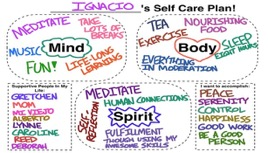 IGNACIO 's Self Care Plan!
MEDITATE
TAKE
LOTS OF
BREAKS
MUSIC
Mind
FUN!
LIFE-LONG
LEARNING
TEA
NOURISHING
FOOD
EXERCISE
Body
SLEEP
EIGHT HOURS
EVERYTHING
IN MODERATION
Supportive People In My
Life:
GRETCHEN
MOM
MI VIEJO
ALBERTO
LYNNE
CAROLINE
REED
DEBORAH
MEDITATE
HUMAN CONNECTIONS
SELF
REFLECTION
Spirit
FULFILLMENT
THOUGH USING MY
AWESOME SKILLS
I want to accomplish:
PEACE
SERENITY
CONTROL
HAPPINESS
GOOD WORK
BE A GOOD
PERSON